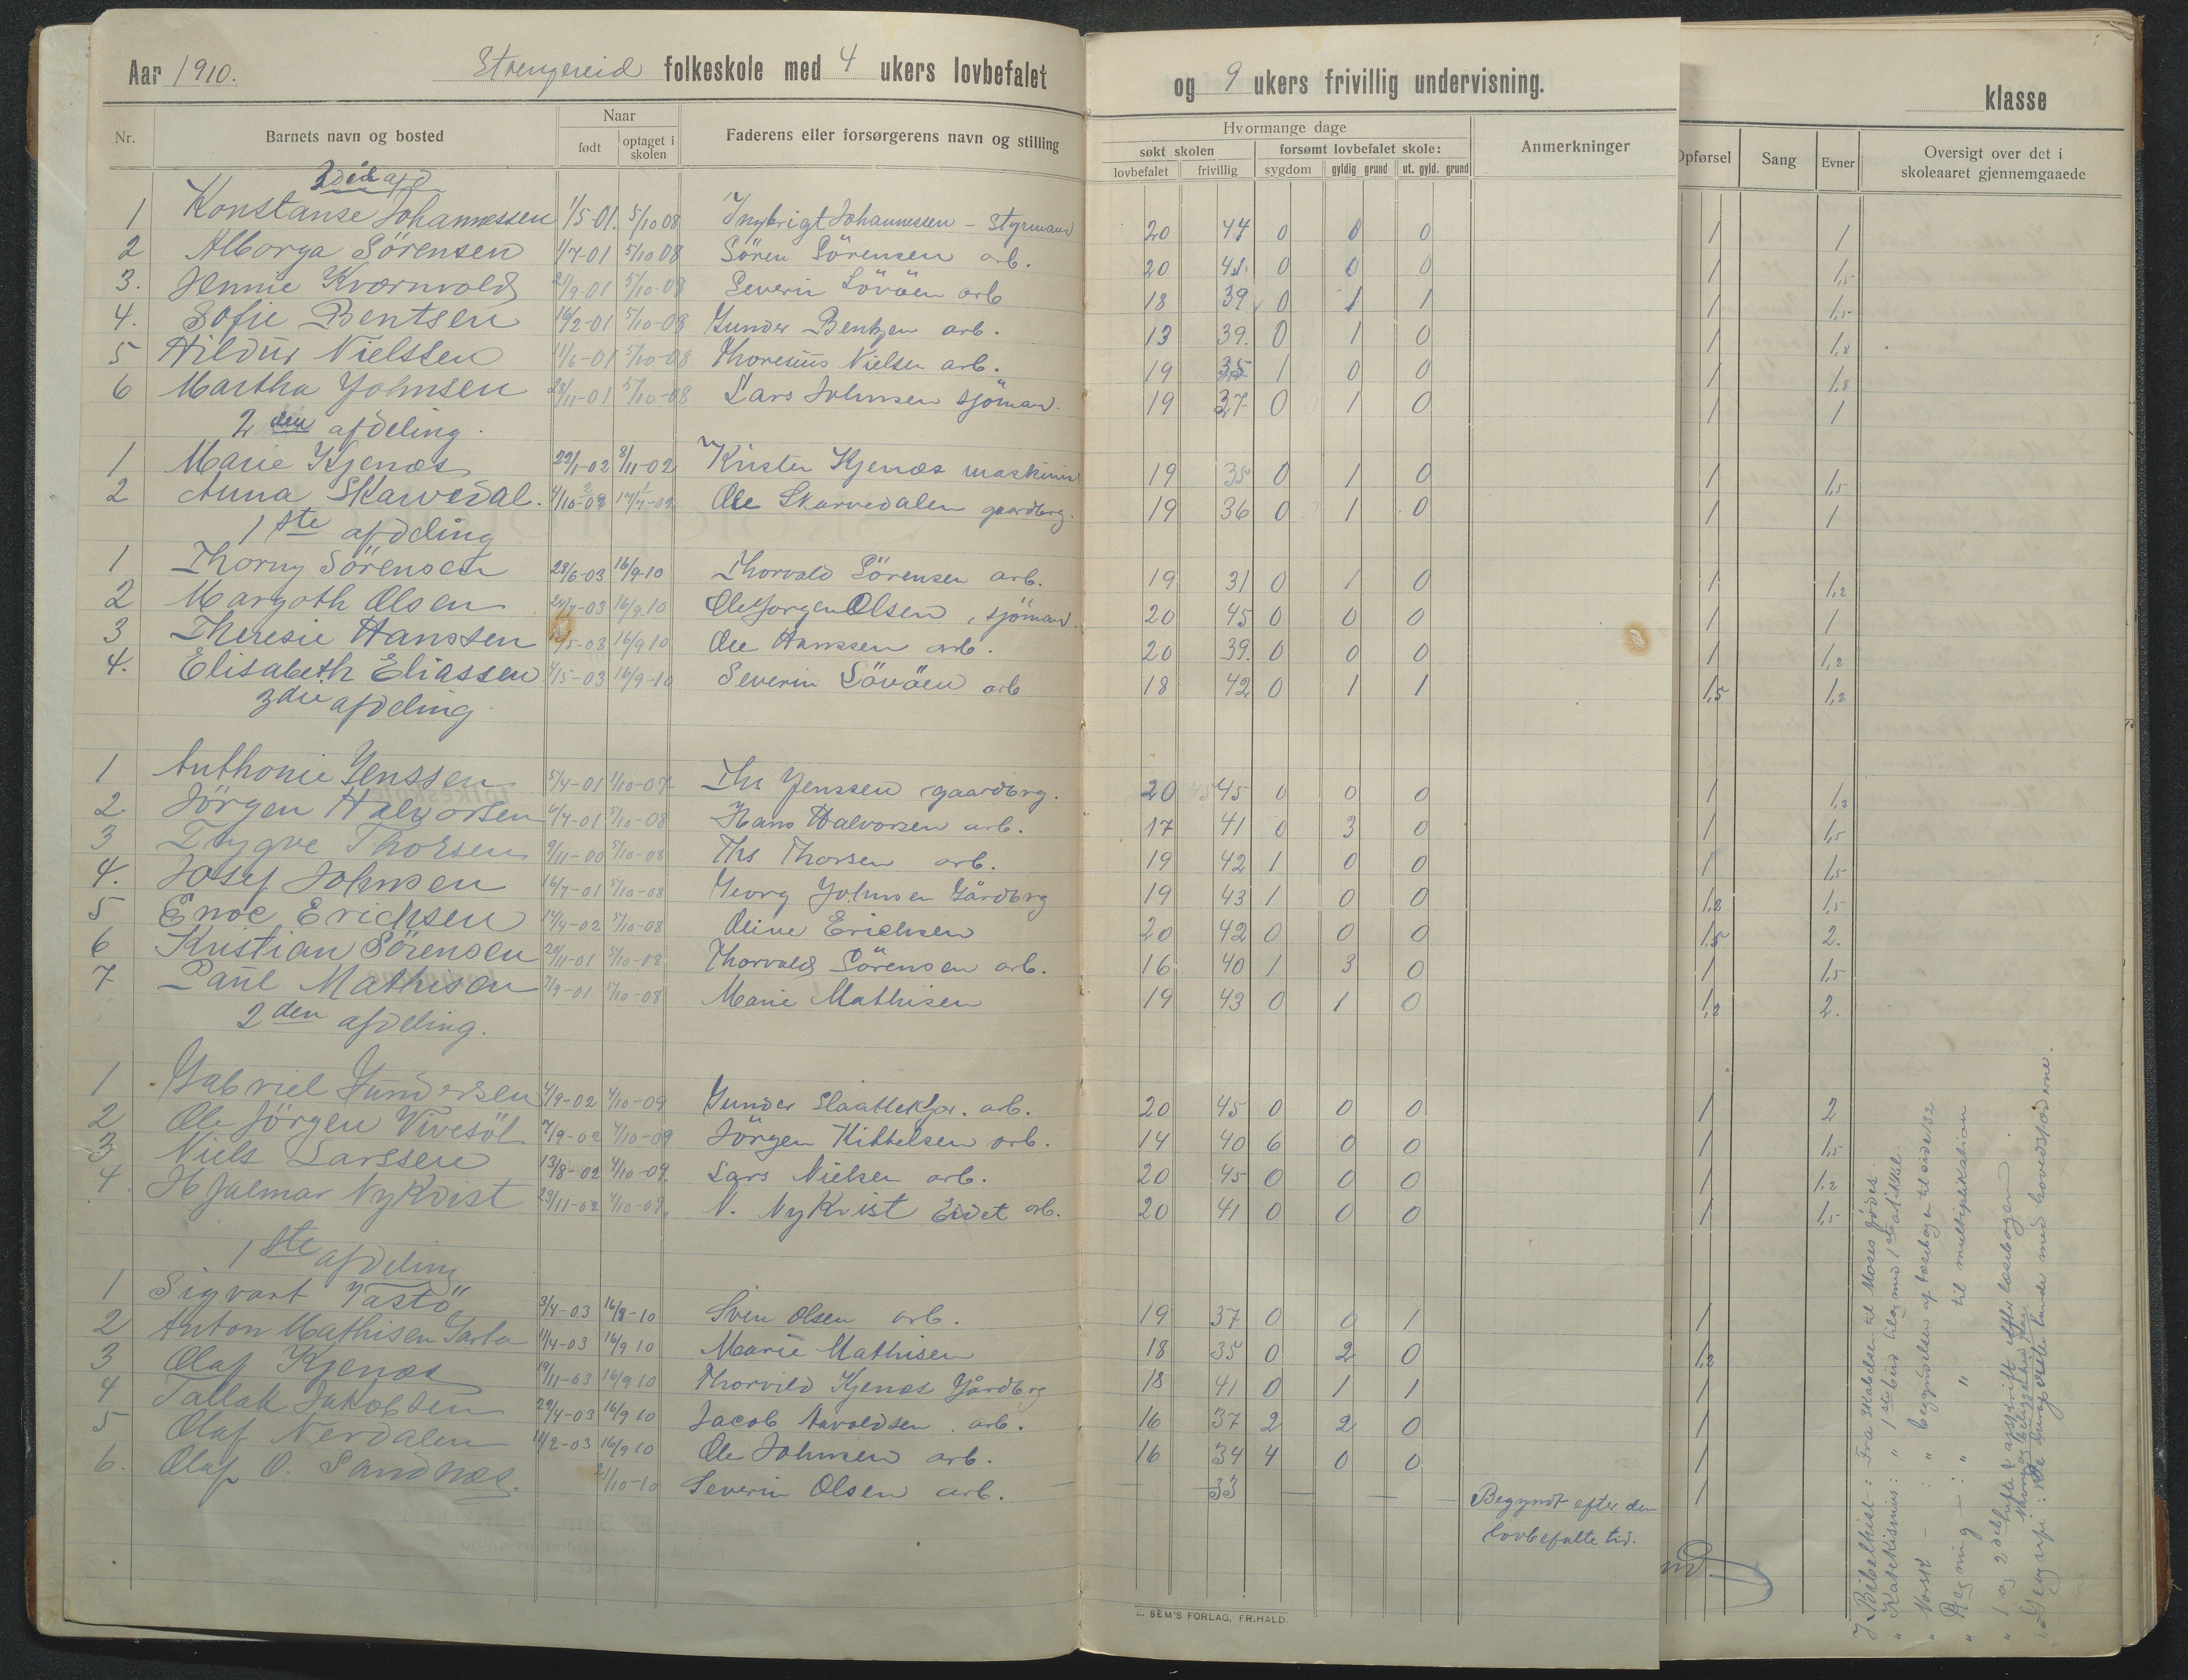 Aar 1910. Strengereid folkeskole med 4 ukers lovbefalet og 9 ukers frivillig undervisning. klasse
Nr. Barnets navn og bosted Naar født optaget i skolen Faderens eller forsørgerens navn og stilling Hvormange dage søkt skolen lovbefalet frivillig forsømt lovbefalet skole: sygdom gyldig grund ut. gyld. grund Anmerkninger Opførsel Sang Evner Oversigt over det i skoleaaret gjennemgaaede
1 Konstanse Johannessen 1/5-01. 5/10 08 Ingbrigt Johannessen - Styrmand 20 44 0 0 0 1 1
2 Alborga Sörensen 1/7-01 5/10 08 Sören Sörensen arb. 20 0 0 0 1 1,5
3. Jennie Kvernvold 2/9-01 5/10-08 Severin Lövåen arb 18 39 0 1 1 1 1,5
4. Sofie Bentsen 16/2-01 5/10-08 Gunder Bentzen arb. 13 39. 0 1 0 1 1,8
5 Hildur Nielssen 11/6-01 5/10-08 Thoresius Nielsen arb. 19 35 1 0 0 1 1,8
6 Martha Johnsen 28/11-01 5/10-08 Lars Johnsen sjömand. 19 37 0 1 0 1 1
2 den afdeling.
1 Marie Kjenæs 22/1-02 8/11-02 Krister Kjenæs maskinist 19 35 0 1 0 1 1,5
2 Anna Skarvedal. Ole Skarvedalen gaardbrg. 19 36 0 1 0 1 1
1 ste afdeling
1 Thorny Sörensen 28/6-03 16/9-10 Thorvald Sörensen arb. 19 31 0 1 0 1 1,2
2 Margoth Olsen 24/7-03 16/9 10 Ole Jorgen Olsen, sjömand. 20 45 0 0 0 1 1
3 Theresie Hanssen 16/9 10 Ole Hanssen arb. 20 39. 0 0 0 1 1,2
4. Elisabeth Eliassen 4/5-03 16/9-10 Severin Lövåen arb 18 42 0 1 1 1,5 1,2
3 die afdeling.
1 Anthonie Jenssen 5/4-01 1/10-07 Ths Jenssen gaardbrg. 20 45 0 0 0 1 1,2
2 Jörgen Halvorsen 6/7-01 5/10-08 Hans Halvorsen arb. 17 41 0 3 0 1 1,5
3 Trygve Thorsen 9/11-00 5/10-08 Ths Thorsen arb. 19 42 1 0 0 1 1,5
4. Josef Johnsen 16/7-01 5/10-08 Georg Johnsen Gårdbrg 19 43 1 0 0 1,2 1,5
5 Enoc Erichsen 14/4-02 5/10-08 Oline Erichsen 20 42 0 0 0 1,5 2.
6 Kristian Sörensen 20/11-01 5/10-08 Thorvald Sörensen arb. 16 40 1 3 0 1 1,5
7 Paul Mathisen 2/9-01 5/10-08 Marie Mathisen 19 43 0 1 0 1,2 2.
2 den afdeling.
1 Gabriel Gundersen 4/9-02 4/10-09 Gunder Slaattekjær. arb. 20 45 0 0 0 1 2
2 Ole Jörgen Vivesöl 7/9-02 4/10-09 Jörgen Kittelsen arb. 14 40 6 0 0 1 1,5
3 Niels Larssen 13/8-02 4/10-09 Lars Nielsen arb. 20 45 0 0 0 1 1,2
4. Hjalmar Nykvist 23/11-02 4/10-09, N. Nykvist Eidet arb. 20 41 0 0 0 1 1,5
1 ste afdeling
1 Sigvart Vastö 3/4-03 16/8-10 Sven Olsen arb. 19 37 0 0 1 1
2 Anton Mathisen Sarta 11/4-03 16/9 10 Marie Mathisen 18 35 0 2 0 1,2
3 Olaf Kjenæs 19/11-03 16/9 10 Thorvild Kjenæs Gårdbrg 18 41 0 1 1 1
4 Tallak Jakobsen 29/4-03 16/9 10 Jacob Aavoldsen arb. 16 37 2 2 0 1
5 Olaf Nerdalen 11/2-03 16/9 10 Ole Johnsen arb. 16 34 4 0 0 1
6. Olaf O. Sandnæs. 21/10-10 Severin Olsen arb. — — 33 — — — Begyndt efter den 1
lovbefalte tid.
I Bibelhist-: Fra skabelsen til Moses fødes.
" Katekismus: " 1 ste bud til og med 1 ste artikkel.
" Norsk - : " begyndelsen af læsebogen til side 132.
" Regning - : " " til multiplikation
" 1 og 2 del afskrift efter læsebogen
" Geografi: De Europæiske lande med hovedstæderne.
... SEM'S FORLAG, FR.HALD.